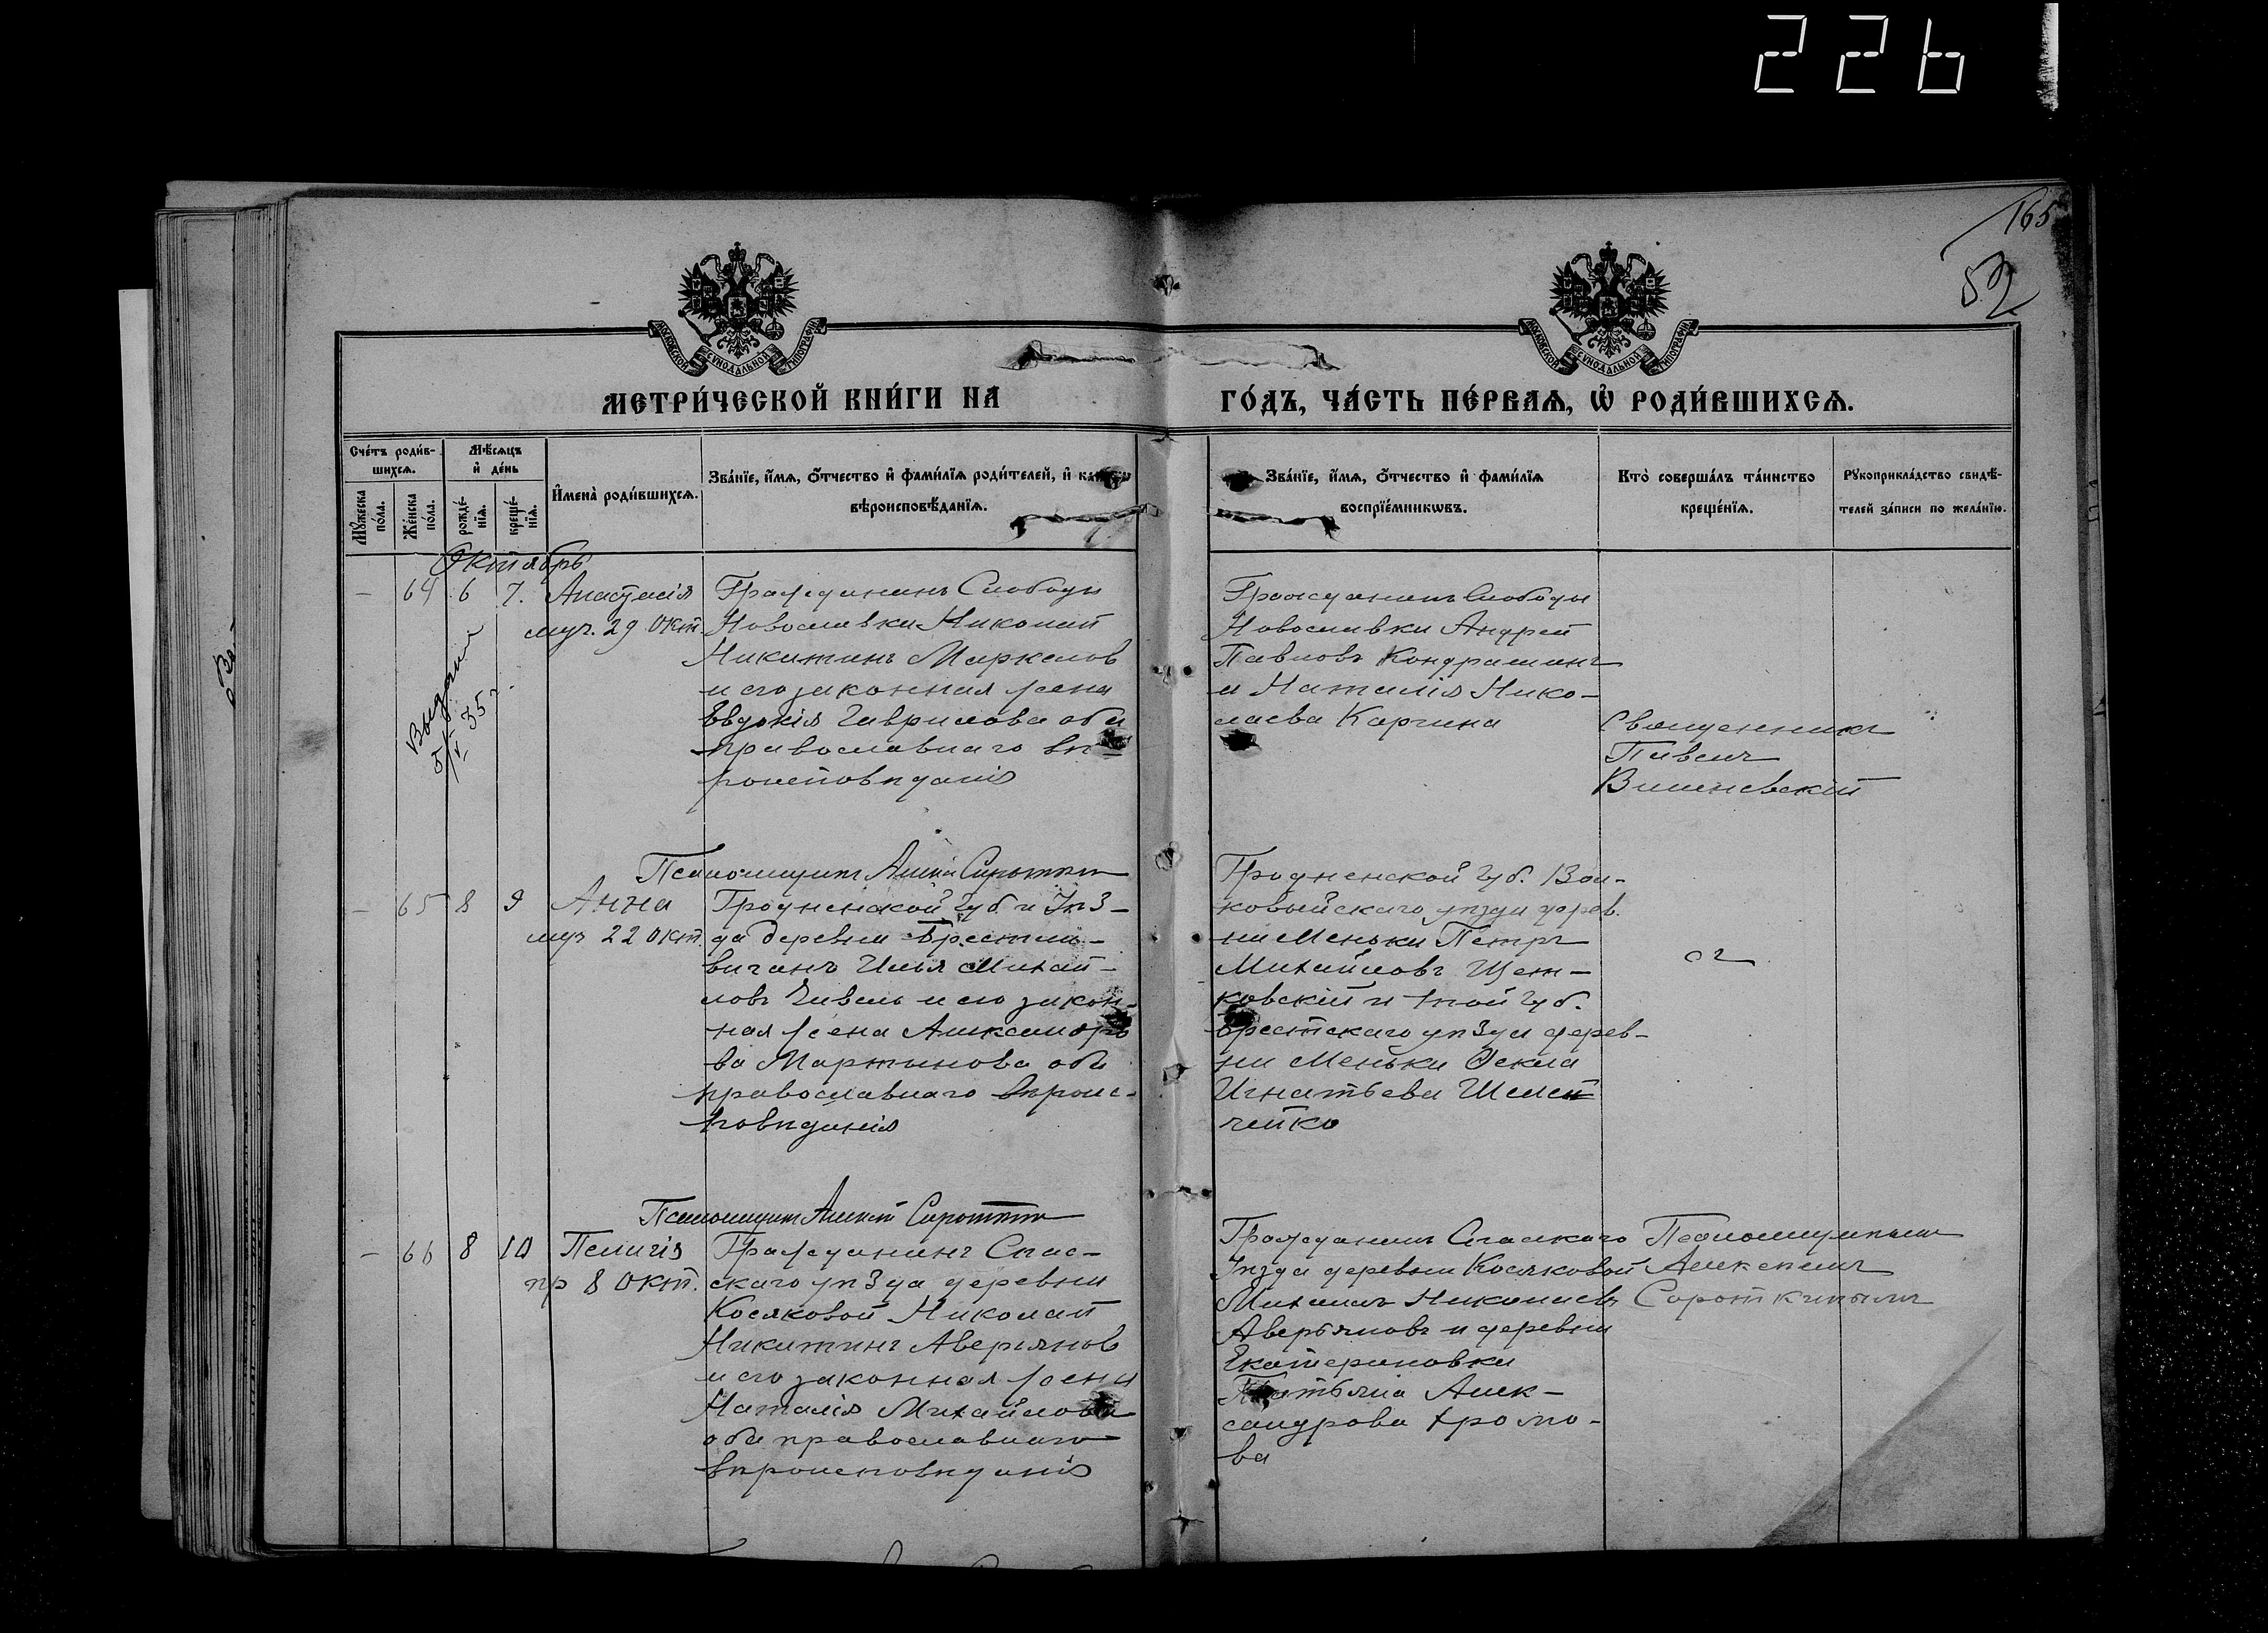 226
165
52
МОСКОВСКОЙ СУНОДАЛЬНОЙ ТИПОГРАФІИ
МОСКОВСКОЙ СУНОДАЛЬНОЙ ТИПОГРАФІИ
МЕТРИ́ЧЕСКОЙ КНИ́ГИ НА
ГО́ДЪ, ЧА́СТЬ ПЕ́РВАѦ, Ѡ҆ РОДИ́ВШИХСѦ.
Сче́тъ роди́в-
шихсѧ.
Мѣ́сѧцъ
и҆ де́нь
Мꙋ́жеска
по́ла.
Же́нска
по́ла.
рожде́-
нїѧ.
креще́-
нїѧ.
И҆мена̀ роди́вшихсѧ.
Зва́нїе, и҆́мѧ, ѻ҆́тчество и҆ фами́лїѧ роди́телей, и҆
вѣроисповѣ́данїѧ.
Зва́нїе, и҆́мѧ, ѻ҆́тчество и҆ фами́лїѧ
воспрїе́мникѡвъ.
Кто̀ соверша́лъ та́инство
креще́нїѧ.
Рꙋкоприкла́дство свидѣ́-
телей за́писи по жела́нїю.
Октябрь
— 64 6 7. Анастасія
муч. 29 Окт.
5/V 35 г.
Гражданинъ Слободы
Новославки Николай
Никитинъ Маркелов
и его законная жена
Евдокія Гаврилова оба
православнаго вѣ-
роисповѣданія
Гражданинъ Слободы
Новославки Андрей
Павловъ Кондрашинъ
и Наталія Нико-
лаева Каргина
Священникъ
Павелъ
Вишневскій
Псаломщикъ Алексѣй Сироткинъ
— 65 8 9 Анна
муч 22 Окт.
Гродненской Губ. и Уѣз-
да деревни
Илья Михай-
ловъ и его закон-
ная жена Александро
ва Мартынова оба
православнаго вѣроис-
повѣданія
Гродненской Губ. Вол-
ковыйскаго уѣзда дерев.
ни Меньки Петръ
Михайловъ
и той Губ.
Брестскаго уѣзда дерев-
ни Меньки Фекла
Игнатьева
Псаломщикъ Алексѣй Сироткинъ
— 66 8 10 Пелагія
пр 8 Окт.
Гражданинъ Спас-
скаго уѣзда деревни
Косяковой Николай
Никитинъ Аверьянов
и его законная жена
Наталія Михайлова
оба православнаго
вѣроисповѣданія
Гражданинъ Спасскаго
Уѣзда деревни Косяковой
Михаилъ Николаевъ
Аверьяновъ и деревни
Екатериновки
Татьяна Алек-
сандрова Хромо-
ва
Псаломщикомъ
Алексѣемъ
Сироткинымъ